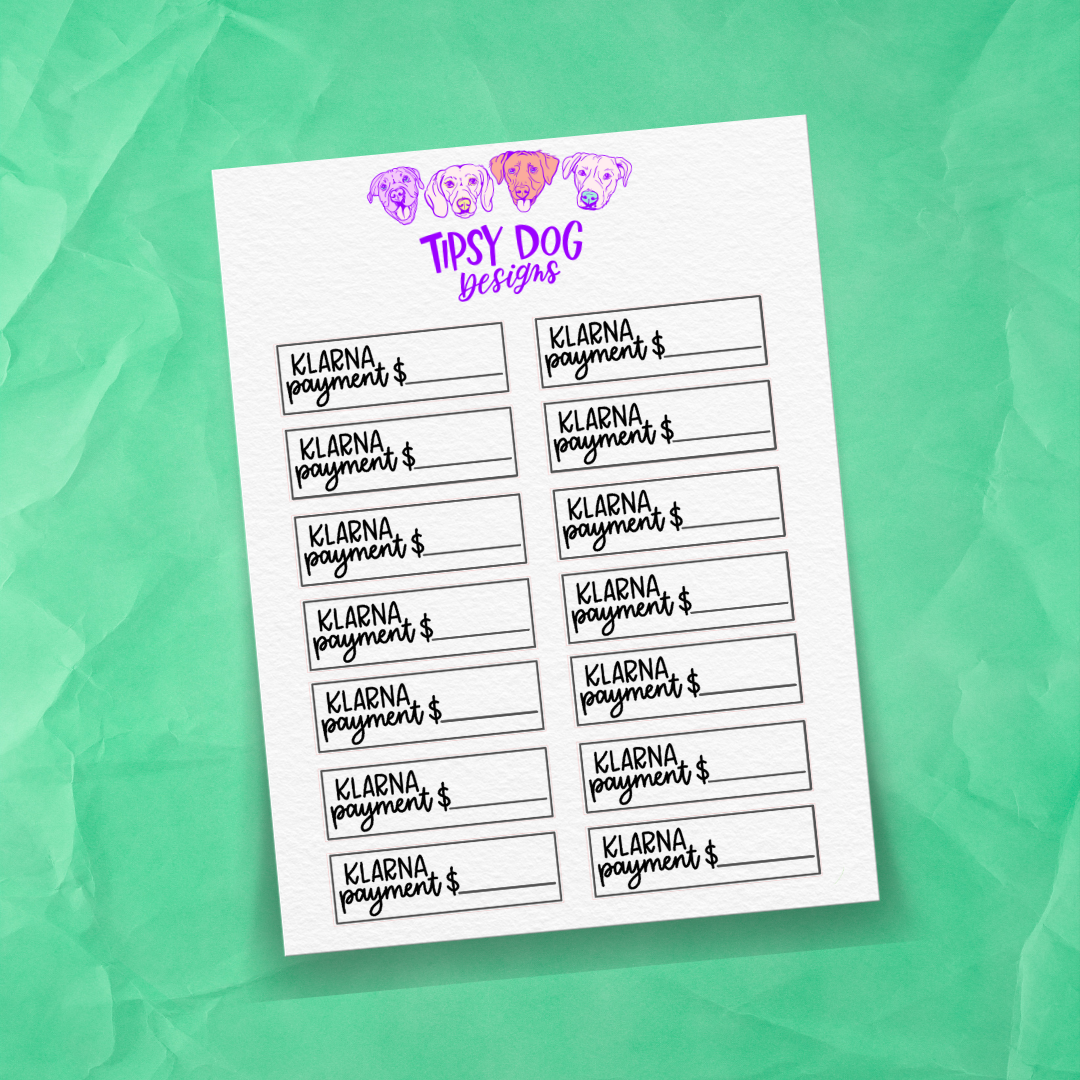 TIPSY DOG
Designs
KLARNA
payment $
KLARNA
payment $
KLARNA
payment $
KLARNA
payment $
KLARNA
payment $
KLARNA
payment $
KLARNA
payment $
KLARNA
payment $
KLARNA
payment $
KLARNA
payment $
KLARNA
payment $
KLARNA
payment $
KLARNA
payment $
KLARNA
payment $